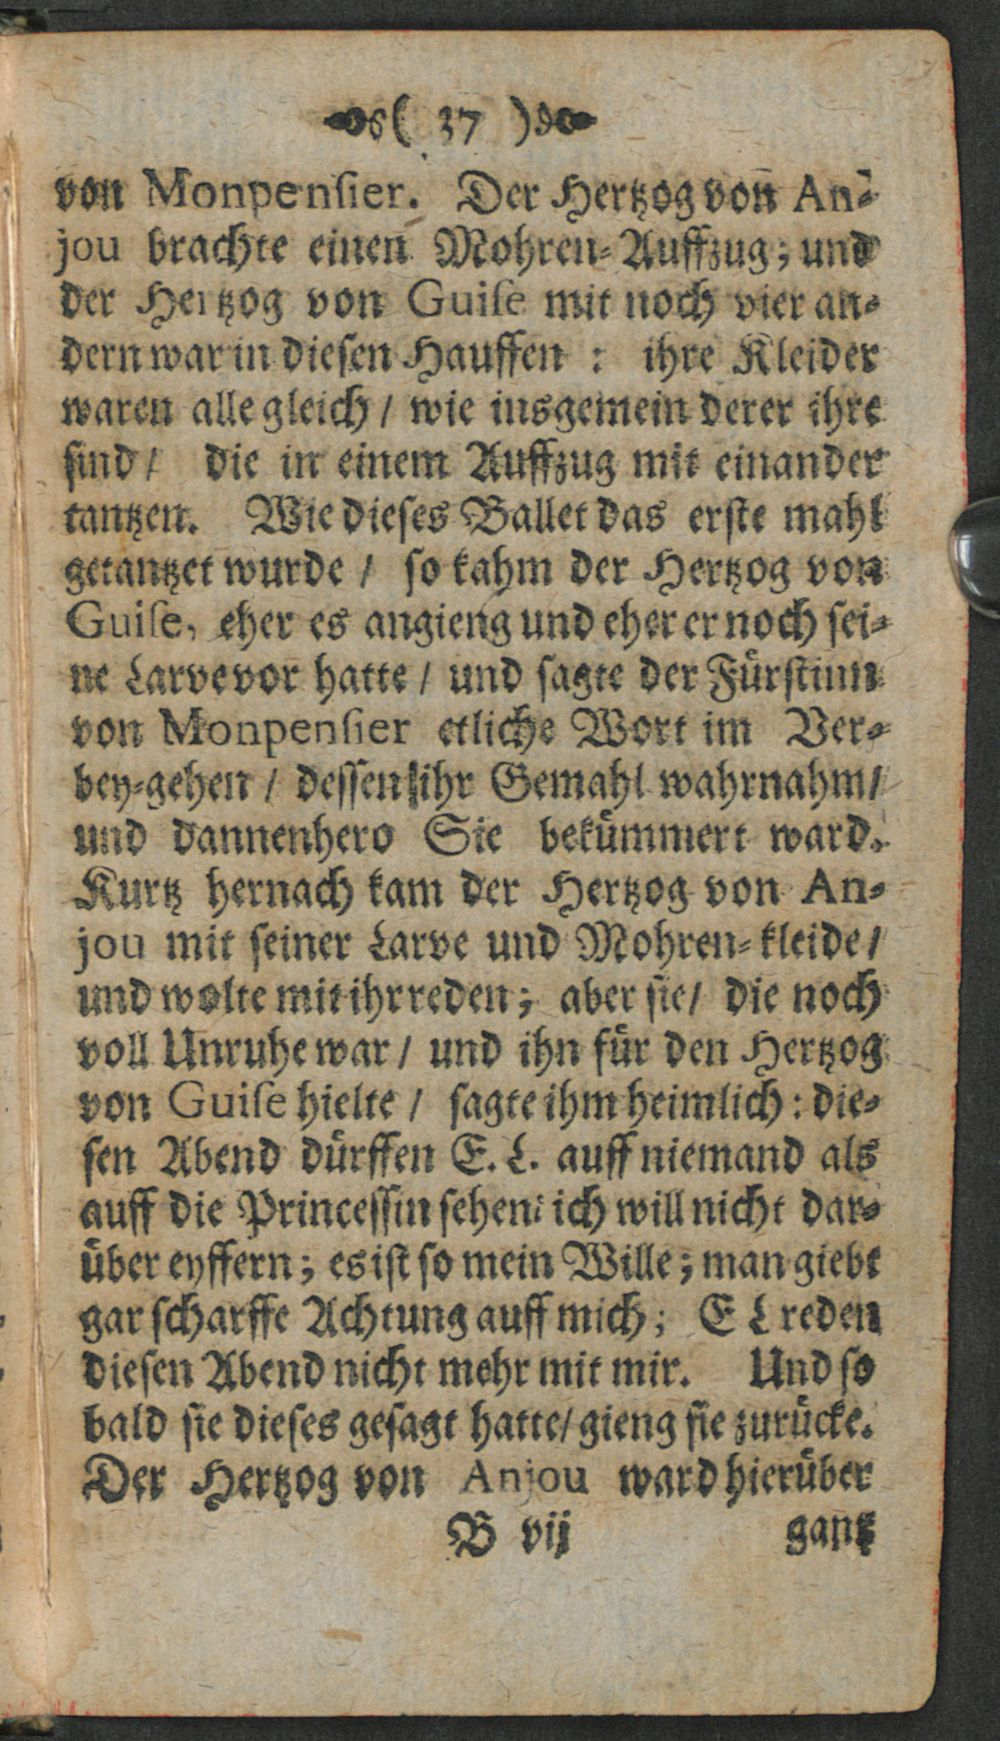 ( 37 )
von Monpenſier. Der Hertzog von An-
jou brachte einen Mohren-Auffzug; und
der Hertzog von Guiſe mit noch vier an-
dern war in dieſen Hauffen : ihre Kleider
waren alle gleich / wie insgemein derer ihre
ſind / die in einem Auffzug mit einander
tantzen. Wie dieſes Ballet das erſte mahl
getantzet wurde / ſo kahm der Hertzog von
Guiſe, eher es angieng und eher er noch ſei-
ne Larve vor hatte / und ſagte der Fürſtinn
von Monpenſier etliche Wort im Ver-
bey-gehen / deſſen ihr Gemahl wahrnahm /
und dannenhero Sie bekümmert ward.
Kurtz hernach kam der Hertzog von An-
jou mit ſeiner Larve und Mohren-kleide /
und wolte mit ihr reden; aber ſie / die noch
voll Unruhe war / und ihn für den Hertzog
von Guiſe hielte / ſagte ihm heimlich: die-
ſen Abend dürffen E. L. auff niemand als
auff die Princeſſin ſehen: ich will nicht dar-
über eyffern; es iſt ſo mein Wille; man giebt
gar ſcharffe Achtung auff mich; E L reden
dieſen Abend nicht mehr mit mir. Und ſo
bald ſie dieſes geſagt hatte / gieng ſie zurücke.
Der Hertzog von Anjou ward hierüber
B vij gantz